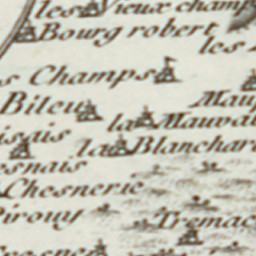 les Vieux champ
Bourg robert
les
s Champs
Bileu
Mau
la Mauvai
isais
la Blanchar
esnais
Chesnerie
Pirouy
Tremac